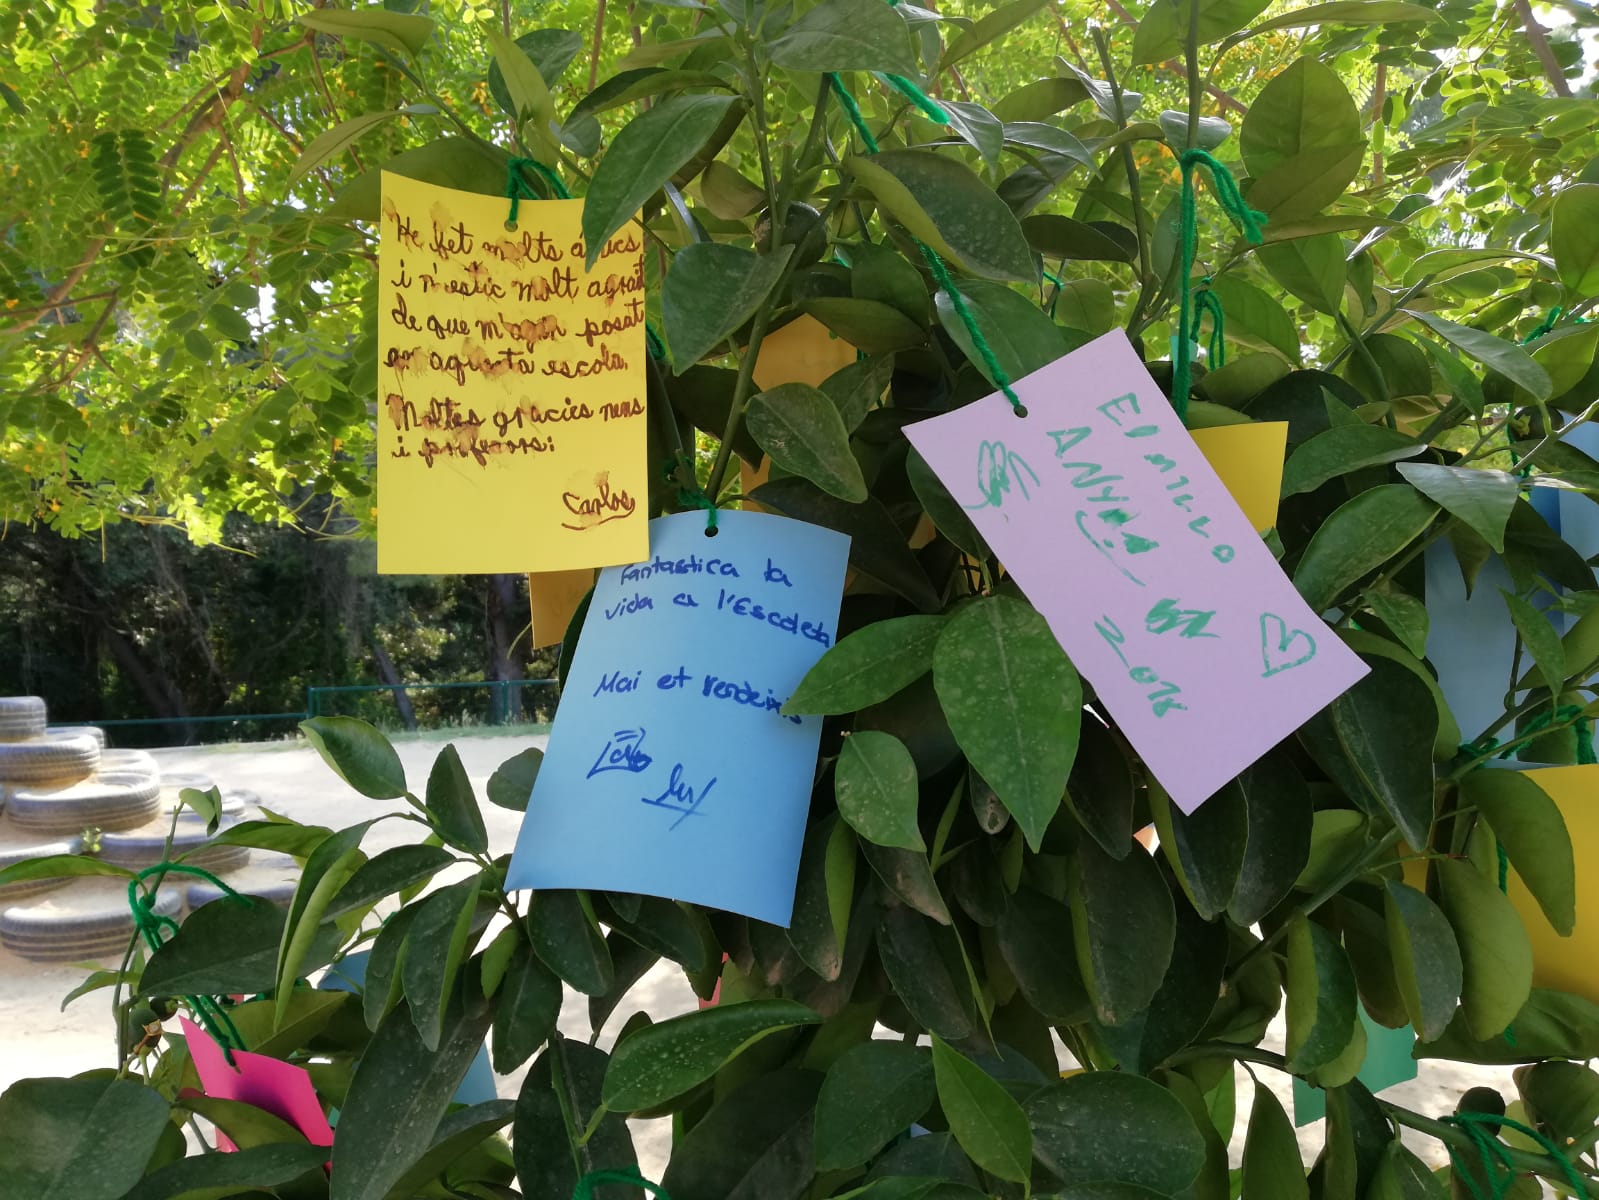 He fet molts amics
i n'estic molt agraït
de que m'agin posat
en aquesta escola.
Moltes gracies nens
i profesors:
Carlos
Fantastica la
vida a l'Escoleta
Mai et rendeixis
EL MILLO
ANY
2018